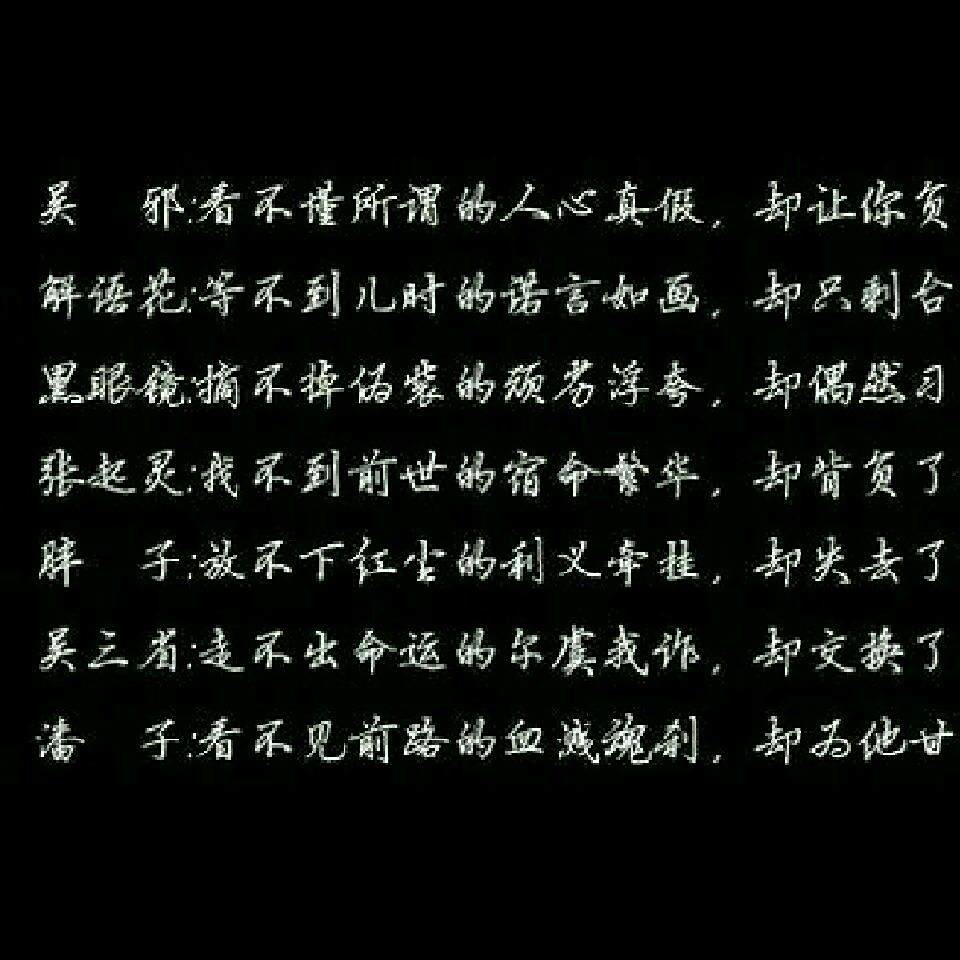 吴 邪:看不懂所谓的人心真假，却让你负
解语花:等不到儿时的诺言如画，却只剩合
黑眼镜:摘不掉伪装的顽劣浮夸，却偶然习
张起灵:找不到前世的宿命繁华，却背负了
胖 子:放不下红尘的利义牵挂，却失去了
吴三省:走不出命运的尔虞我诈，却交换了
潘 子:看不见前路的血溅魂刹，却为他甘